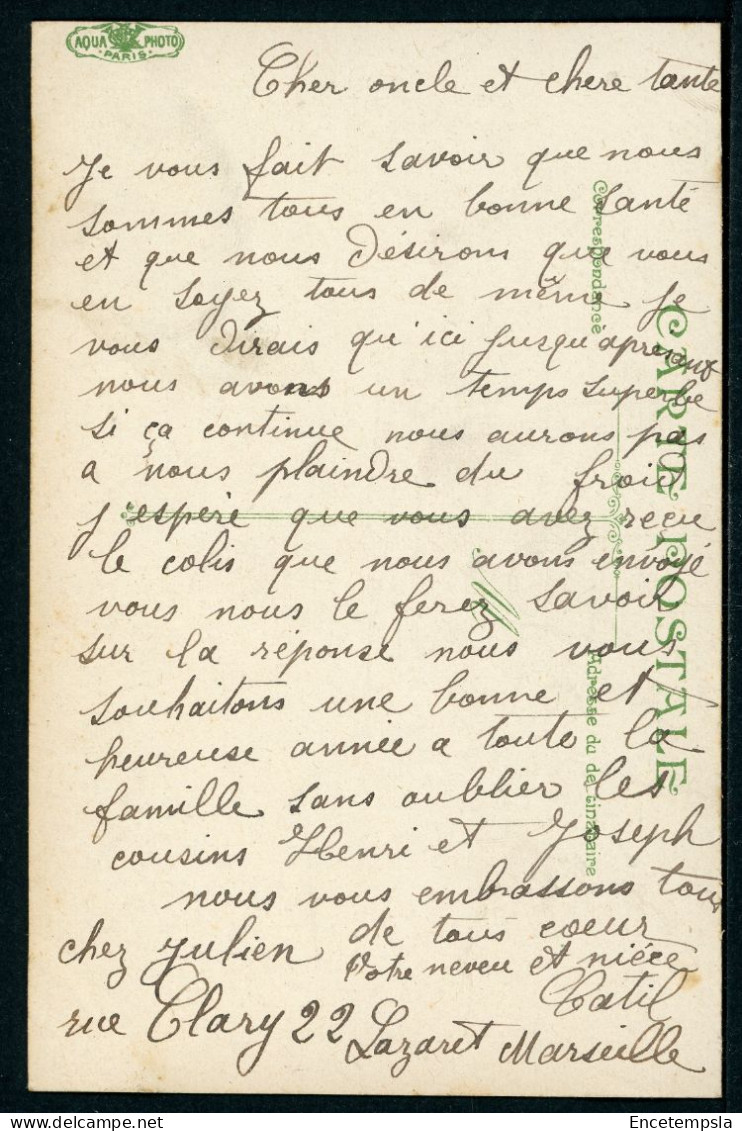 AQUA PHOTO
PARIS
Cher oncle et chere tante
Je vous fait savoir que nous
sommes tous en bonne santé
et que nous désirons que vous
en soyez tous de même je
vous dirais qu'ici jusqu'apresent
nous avons un temps superbe
si ça continue nous aurons pas
a nous plaindre du froid
j'espère que vous avez reçu
le colis que nous avons envoyé
vous nous le ferez savoir
sur la réponse nous vous
souhaitons une bonne et
heureuse année a toute la
famille sans oublier les
cousins Henri et Joseph
nous vous embrassons tous
de tous coeur
Votre neveu et nièce
chez Julien
rue Clary 22
Lazaret Marseille
CARTE POSTALE
Correspondance
Adresse du destinataire
M
Encetempsla